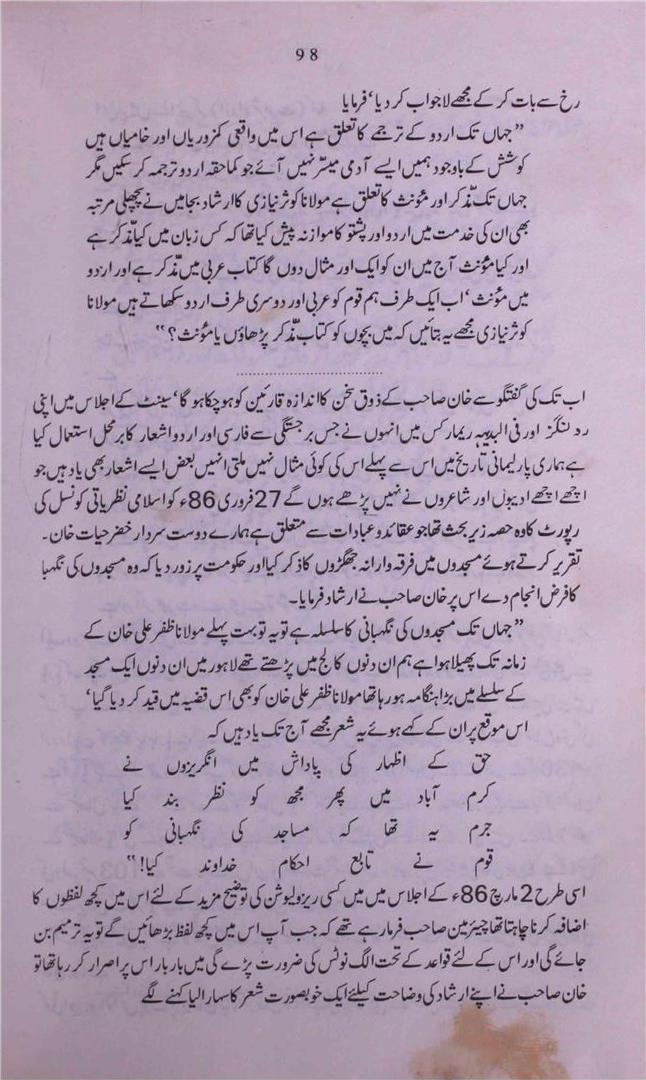 98
رخ سے بات کر کے مجھے لاجواب کر دیا‘ فرمایا
”جہاں تک اردو کے ترجمے کا تعلق ہے اس میں واقعی کمزوریاں اور خامیاں ہیں
کوشش کے باوجود ہمیں ایسے آدمی میسّر نہیں آئے جو کماحقہ اردو ترجمہ کر سکیں مگر
جہاں تک مذّکر اور مؤنث کا تعلق ہے مولانا کوثر نیازی کا ارشاد بجا میں نے پچھلی مرتبہ
بھی ان کی خدمت میں اردو اور پشتو کا موازنہ پیش کیا تھا کہ کس زبان میں کیا مذّکر ہے
اور کیا مؤنث آج میں ان کو ایک اور مثال دوں گا کتاب عربی میں مذّکر ہے اور اردو
میں مؤنث‘ اب ایک طرف ہم قوم کو عربی اور دوسری طرف اردو سکھاتے ہیں مولانا
کوثر نیازی مجھے یہ بتائیں کہ میں بچوں کو کتاب مذّکر پڑھاؤں یا مؤنث؟“
اب تک کی گفتگو سے خان صاحب کے ذوق سخن کا اندازہ قارئین کو ہو چکا ہو گا‘ سینٹ کے اجلاس میں اپنی
رولنگز اور فی البدیہہ ریمارکس میں انہوں نے جس برجستگی سے فارسی اور اردو اشعار کا برمحل استعمال کیا
ہے ہماری پارلیمانی تاریخ میں اس سے پہلے اس کی کوئی مثال نہیں ملتی انہیں بعض ایسے اشعار بھی یاد ہیں جو
اچھے اچھے ادیبوں اور شاعروں نے نہیں پڑھے ہوں گے 27 فروری 86ء کو اسلامی نظریاتی کونسل کی
رپورٹ کا وہ حصہ زیر بحث تھا جو عقائد و عبادات سے متعلق ہے ہمارے دوست سردار خضر حیات خان۔
تقریر کرتے ہوئے مسجدوں میں فرقہ وارانہ جھگڑوں کا ذکر کیا اور حکومت پر زور دیا کہ وہ مسجدوں کی نگہبا
کا فرض انجام دے اس پر خان صاحب نے ارشاد فرمایا۔
”جہاں تک مسجدوں کی نگہبانی کا سلسلہ ہے تو یہ تو بہت پہلے مولانا ظفر علی خان کے
زمانہ تک پھیلا ہوا ہے ہم ان دنوں کالج میں پڑھتے تھے لاہور میں ان دنوں ایک مسجد
کے سلسلے میں بڑا ہنگامہ ہو رہا تھا مولانا ظفر علی خان کو بھی اس قضیہ میں قید کر دیا گیا‘
اس موقع پر ان کے کہے ہوئے یہ شعر مجھے آج تک یاد ہیں کہ
حق کے اظہار کی پاداش میں انگریزوں نے
کرم آباد میں پھر مجھ کو نظر بند کیا
جرم یہ تھا کہ مساجد کی نگہبانی کو
قوم نے تابع احکام خداوند کیا!“
اسی طرح 2 مارچ 86ء کے اجلاس میں میں کسی ریزولیوشن کی توضیح مزید کے لئے اس میں کچھ لفظوں کا
اضافہ کرنا چاہتا تھا چیئرمین صاحب فرما رہے تھے کہ جب آپ اس میں کچھ لفظ بڑھائیں گے تو یہ ترمیم بن
جائے گی اور اس کے لئے قواعد کے تحت الگ نوٹس کی ضرورت پڑے گی میں بار بار اس پر اصرار کر رہا تھا تو
خان صاحب نے اپنے ارشاد کی وضاحت کیلئے ایک خوبصورت شعر کا سہارا لیا کہنے لگے